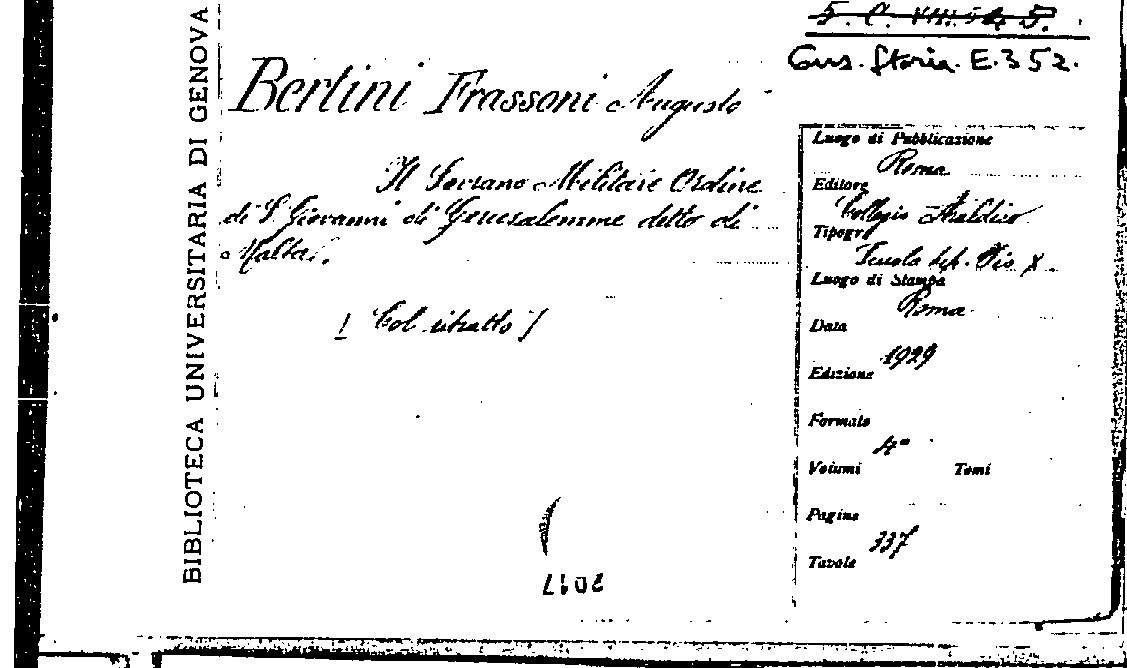 5. C. VIII. 54. 5.
Cons. Storia. E.352.
BIBLIOTECA UNIVERSITARIA DI GENOVA
Bertini Frassoni Augusto
Il Sovrano Militare Ordine
di S. Giovanni di Gerusalemme detto di
Malta.
[Col ritratto]
Luogo di Pubblicazione
Roma
Editore
Collegio Araldico
Tipogr.
Scuola tip. Pio X.
Luogo di Stampa
Roma
Data
1929
Edizione
Formato
4°
Volumi Tomi
Pagine
337
Tavole